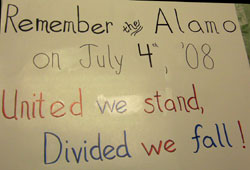 Remember the Alamo
on July 4th, '08
United we stand,
Divided we fall!